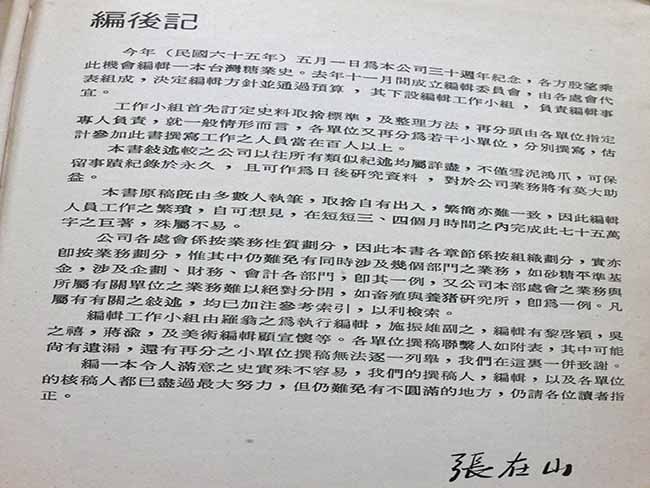 編後記
今年（民國六十五年）五月一日爲本公司三十週年紀念，各方殷望乘
此機會編輯一本台灣糖業史。去年十一月間成立編輯委員會，由各處會代
表組成，決定編輯方針並通過預算，其下設編輯工作小組，負責編輯事
宜。
工作小組首先訂定史料取捨標準，及整理方法，再分頭由各單位指定
專人負責，就一般情形而言，各單位又再分爲若干小單位，分別撰寫，估
計參加此書撰寫工作之人員當在百人以上。
本書敍述較之公司以往所有類似紀述均屬詳盡，不僅雪泥鴻爪，可保
留事蹟紀錄於永久，且可作爲日後研究資料，對於公司業務將有莫大助
益。
本書原稿旣由多數人執筆，取捨自有出入，繁簡亦難一致，因此編輯
人員工作之繁瑣，自可想見，在短短三、四個月時間之內完成此七十五萬
字之巨著，殊屬不易。
公司各處會係按業務性質劃分，因此本書各章節係按組織劃分，實亦
卽按業務劃分，惟其中仍難免有同時涉及幾個部門之業務，如砂糖平準基
金，涉及企劃、財務、會計各部門，卽其一例，又公司本部處會之業務與
所屬有關單位之業務難以絕對分開，如畜殖與養猪研究所，卽爲一例。凡
屬有有關之敍述，均已加注參考索引，以利檢索。
編輯工作小組由羅翁之爲執行編輯，施振維副之，編輯有黎啓穎，吳
之禧，蔣瀹，及美術編輯顧宣懷等。各單位撰稿聯繫人如附表，其中可能
尚有遺漏，還有再分之小單位撰稿無法逐一列舉，我們在這裏一併致謝。
編一本令人滿意之史實殊不容易，我們的撰稿人，編輯，以及各單位
的核稿人都已盡過最大努力，但仍難免有不圓滿的地方，仍請各位讀者指
正。
張在山